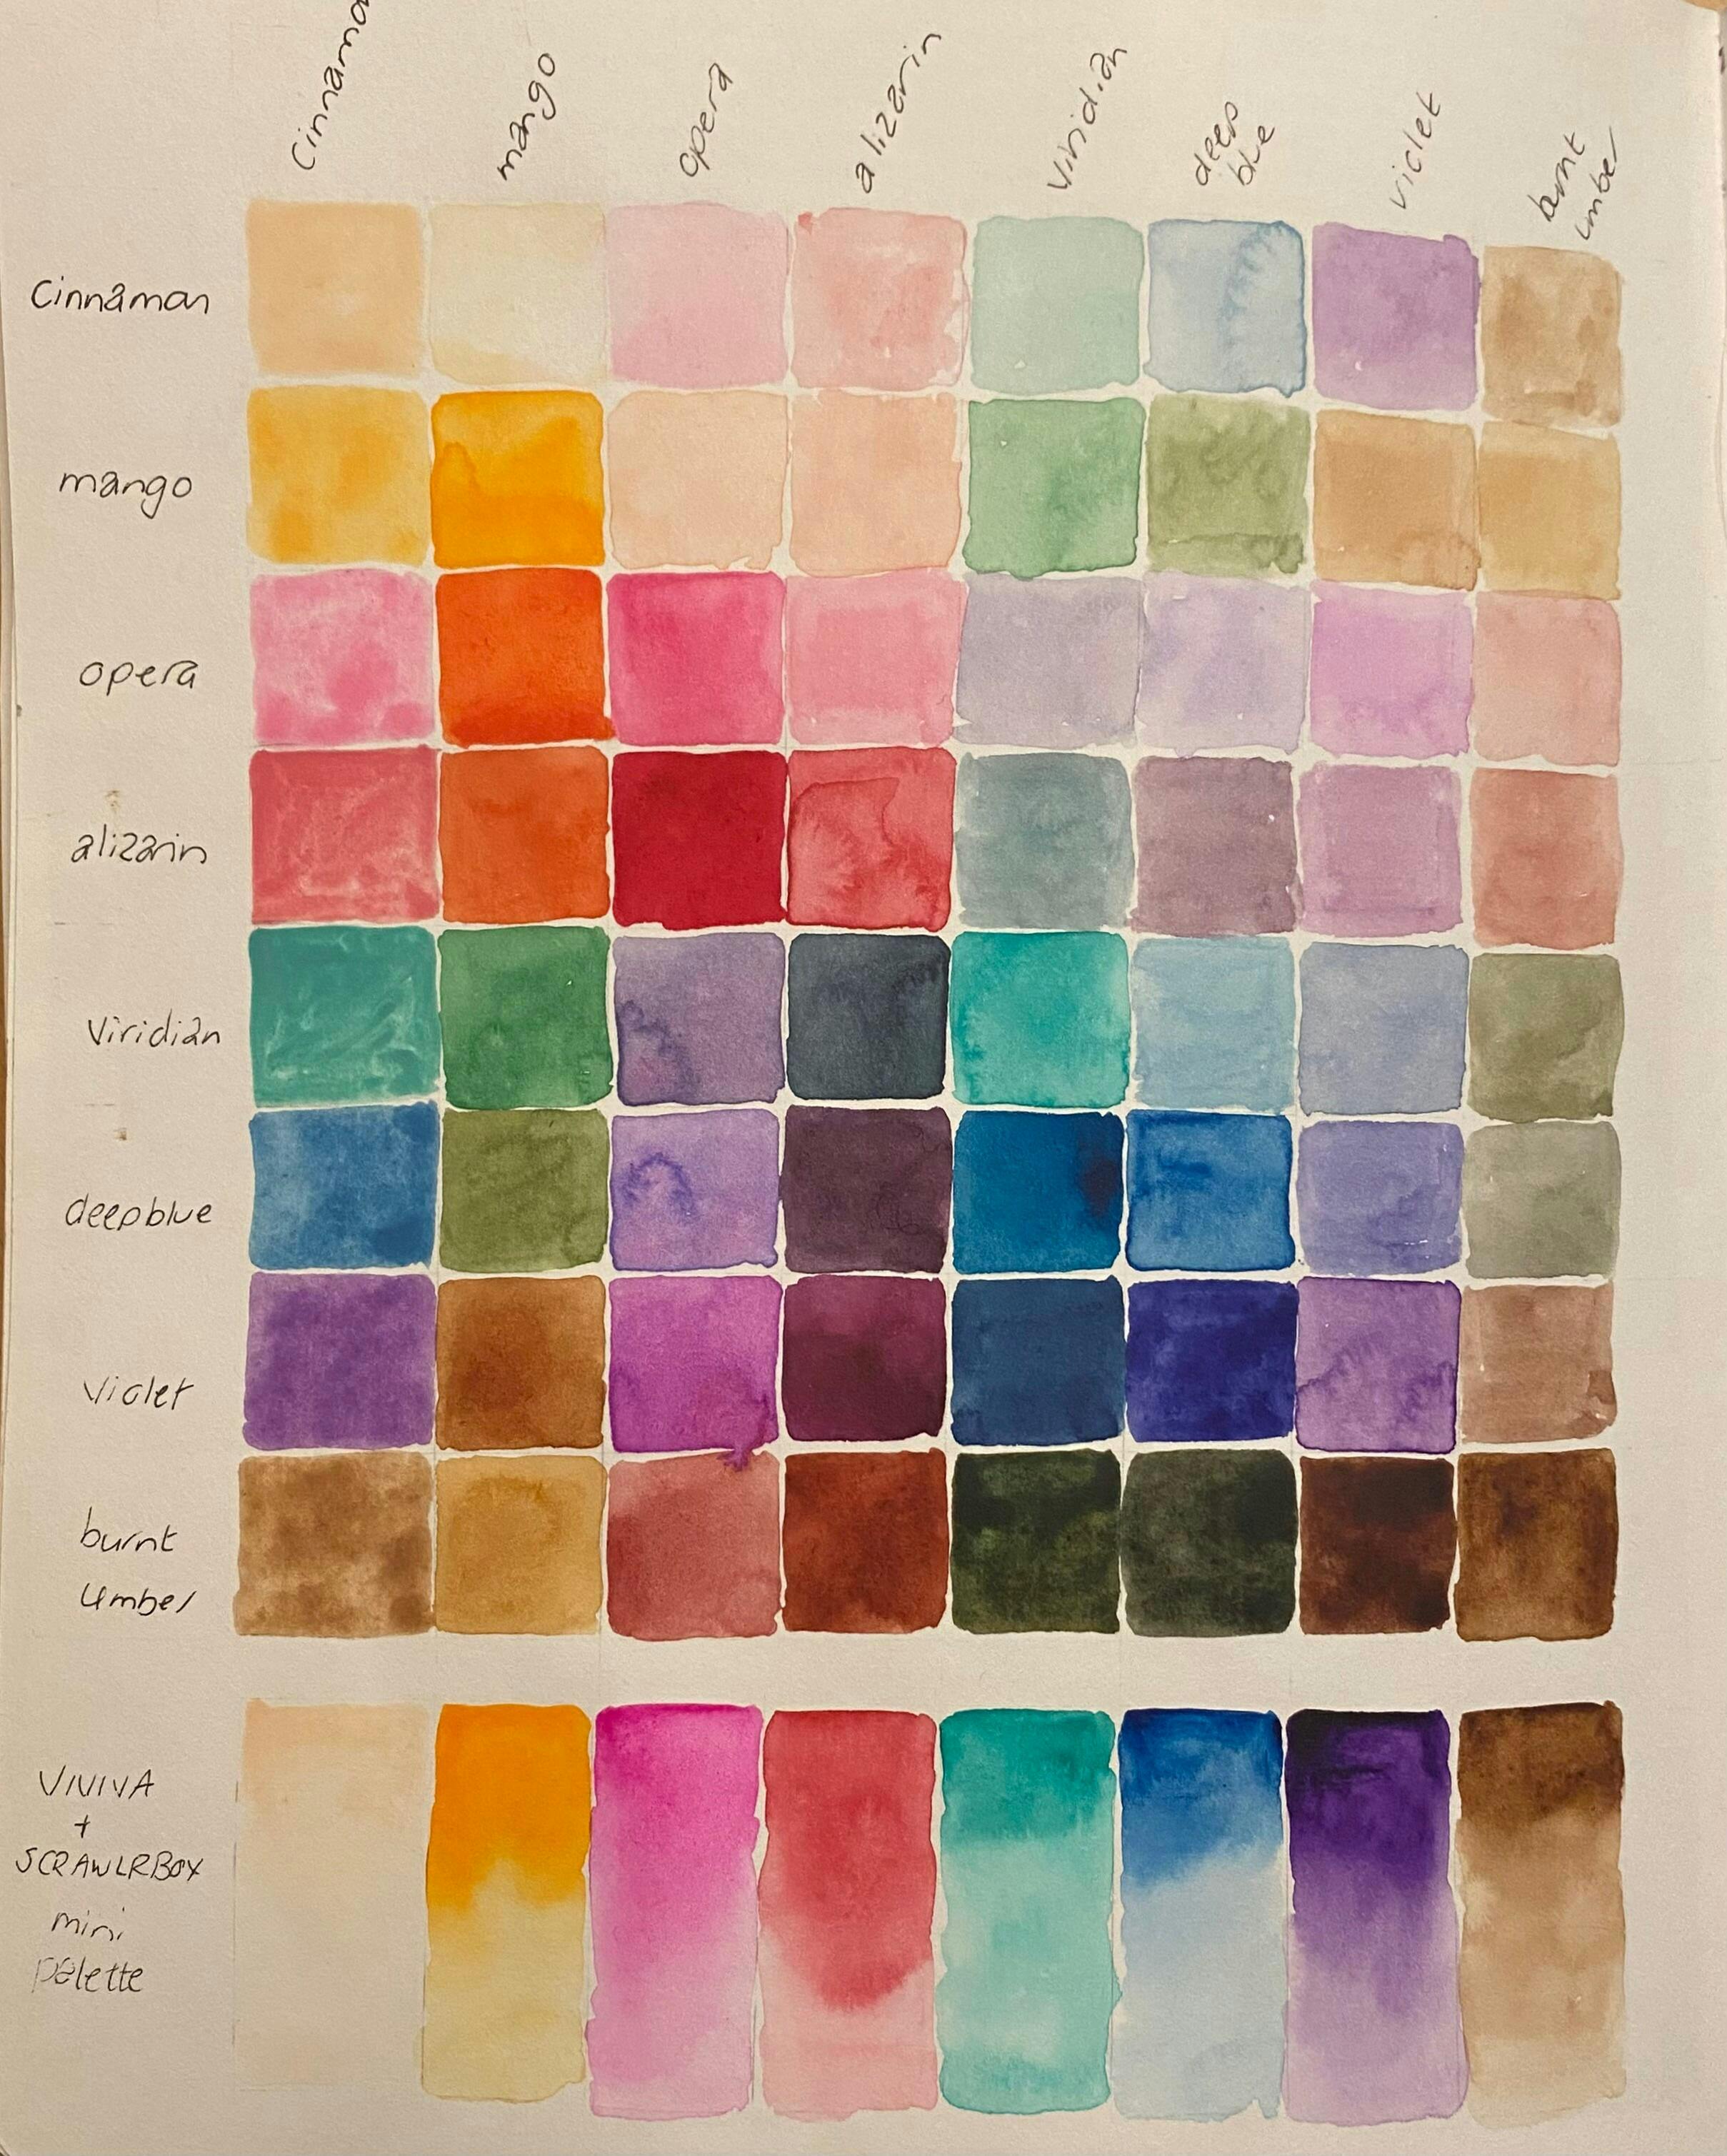 Cinnamo
mango
opera
alizarin
Viridian
deep
blue
violet
burnt
umber
Cinnamon
mango
opera
alizarin
Viridian
deepblue
Violet
burnt
Umber
VIVIVA
+
SCRAWLRBOX
mini
palette